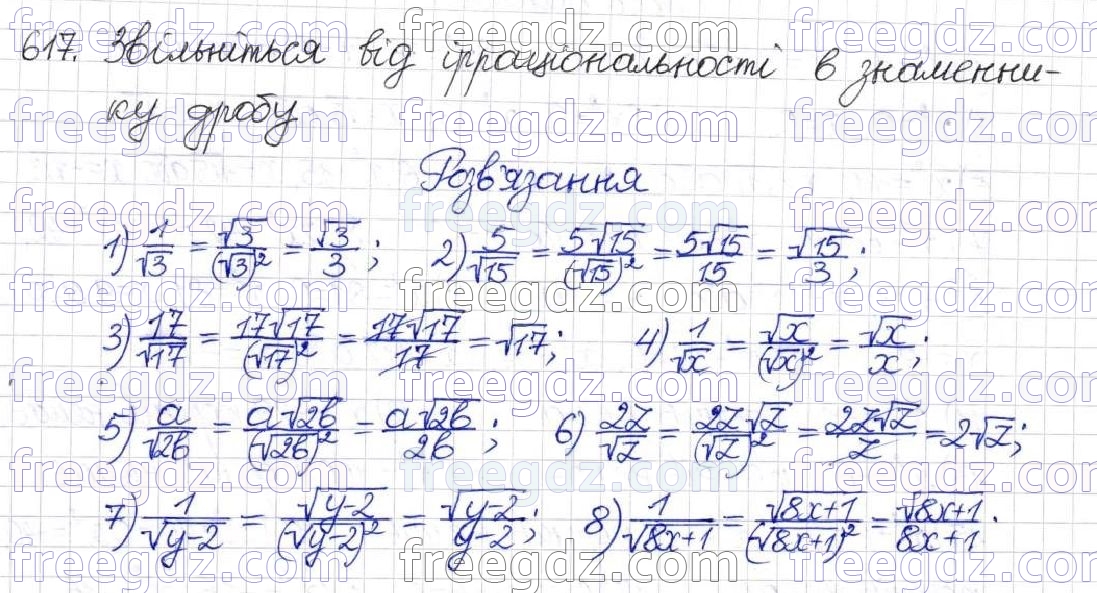 617. Звільніться від ірраціональності в знаменни-
ку дробу
Розв'язання
1) 1/√3 = √3/(√3)² = √3/3; 2) 5/√15 = 5√15/(√15)² = 5√15/15 = √15/3;
3) 17/√17 = 17√17/(√17)² = 17√17/17 = √17; 4) 1/√x = √x/(√x)² = √x/x;
5) a/√2b = a√2b/(√2b)² = a√2b/2b; 6) 2z/√z = 2z√z/(√z)² = 2z√z/z = 2√z;
7) 1/√y-2 = √y-2/(√y-2)² = √y-2/y-2; 8) 1/√8x+1 = √8x+1/(√8x+1)² = √8x+1/8x+1.
freegdz.com